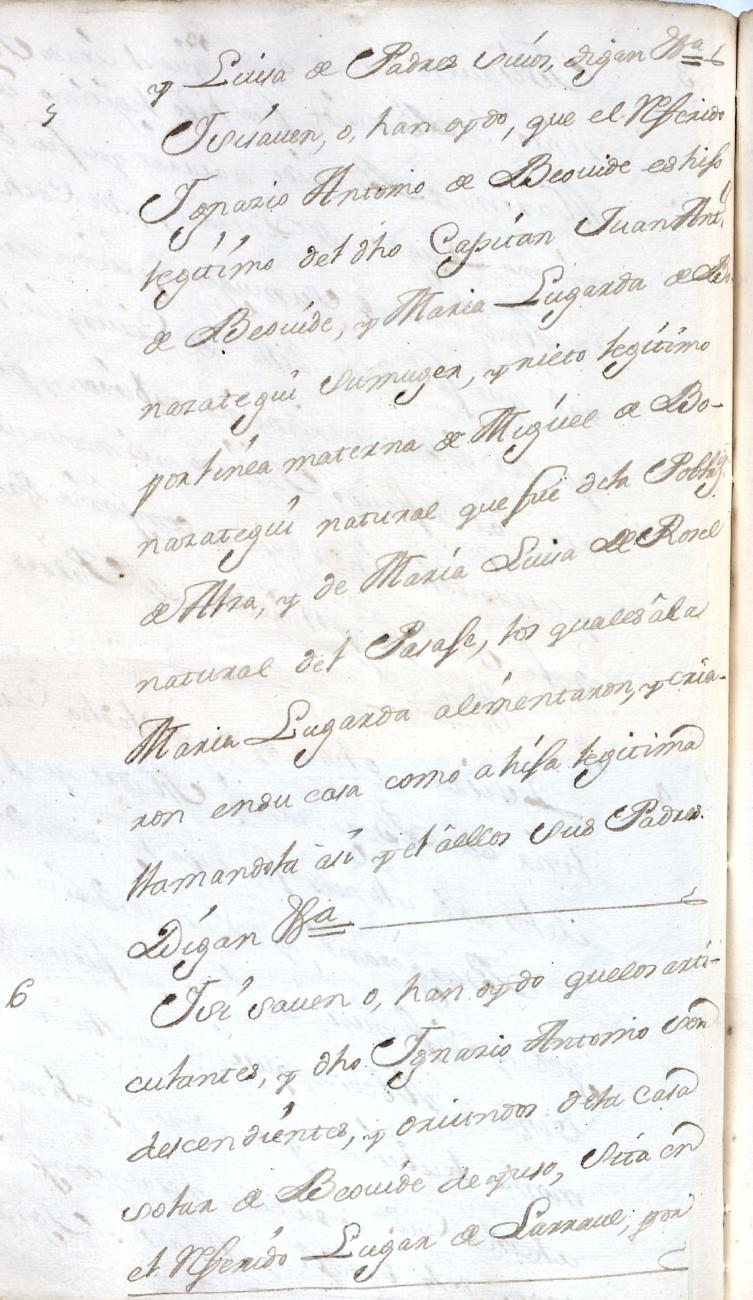 y Luisa de Padres suios, digan &a
5
Isi sauen, o, han oydo, que el Referido
Ignazio Antonio de Beouide es hijo
legítimo del dho Capitan Juan Antº
de Beouide, y Maria Lugarda de Bo
nazategui su muger, y nieto legítimo
por línea materna de Miguel de Bo-
nazategui natural que fue dela Poblaⁿ
de Alza, y de María Luisa de Rosel
natural del Pasaje, los quales âla
Maria Lugarda alimentaron, y cria-
ron en su casa como a hija legitima
llamandola âsi y el âellos sus Padres.
Digan &a
6
Isi sauen o, han oydo quelos artí-
culantes, y dho Ignazio Antonio son
descendientes, y oriundos dela casa
solar de Beouide de yuso, sita en
el Referido Lugar de Larraul; por